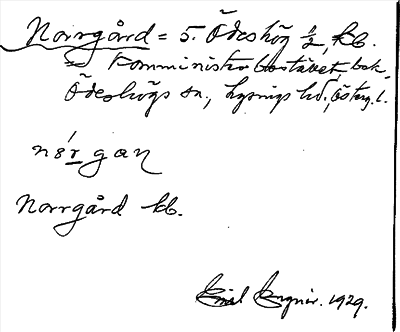 Norrgård = 5. Ödeshög ½, kb.
= Komministerbostället, bok,
Ödeshögs sn, Lysings hd, Österg. l.
Norrgård kb.
Emil 1929.